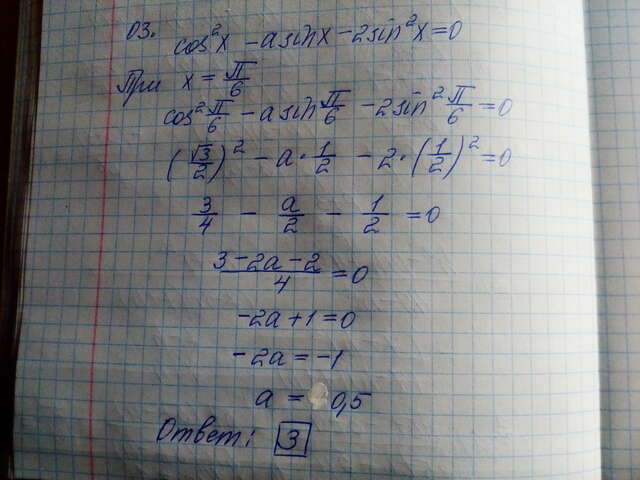 03. cos²x - a sin x - 2sin²x = 0
При x = π/6
cos² π/6 - a sin π/6 - 2sin² π/6 = 0
(√3/2)² - a · 1/2 - 2 · (1/2)² = 0
3/4 - a/2 - 1/2 = 0
3 - 2a - 2/4 = 0
-2a + 1 = 0
-2a = -1
a = 0,5
Ответ: 3